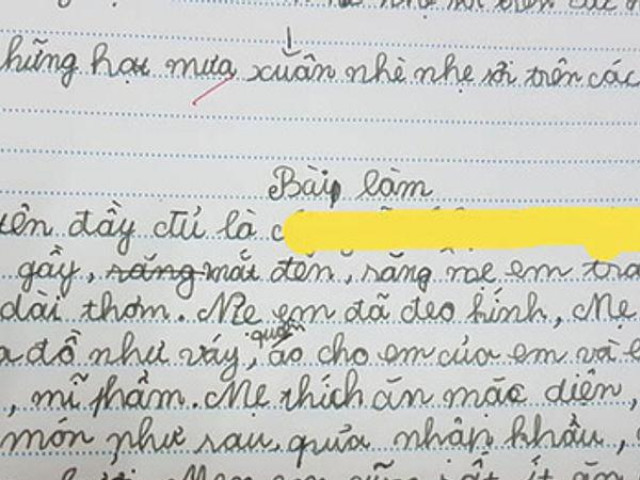 hững hạt mưa xuân nhè nhẹ rơi trên các
Bài làm
tên đầy đủ là c
gầy, răng mắt đen, răng mẹ em tra
dài thơm. Mẹ em đã đeo kính, Mẹ
a đồ như váy, quần áo cho em của em và e
, mĩ phẩm. Mẹ thích ăn mặc diện,
món như rau, quả nhập khẩu,